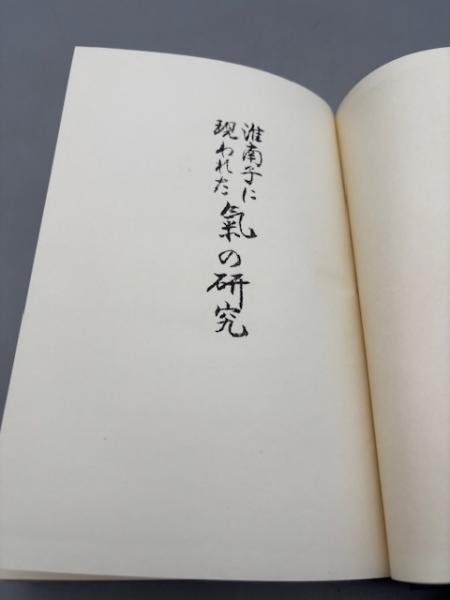 淮南子に
現われた
氣の研究